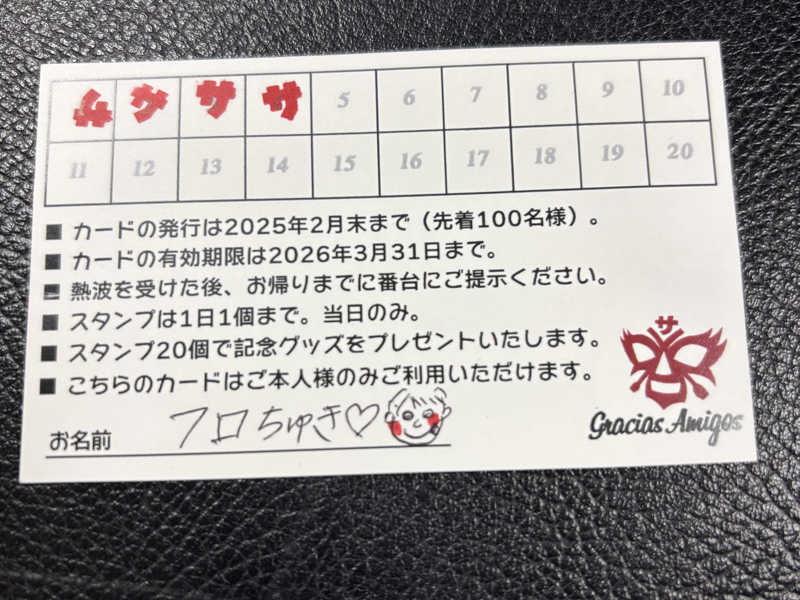 サ サ サ サ 5 6 7 8 9 10
11 12 13 14 15 16 17 18 19 20
■ カードの発行は2025年2月末まで（先着100名様）。
■ カードの有効期限は2026年3月31日まで。
■ 熱波を受けた後、お帰りまでに番台にご提示ください。
■ スタンプは1日1個まで。当日のみ。
■ スタンプ20個で記念グッズをプレゼントいたします。
■ こちらのカードはご本人様のみご利用いただけます。
お名前 フロちゅき♡
サ
Gracias Amigos